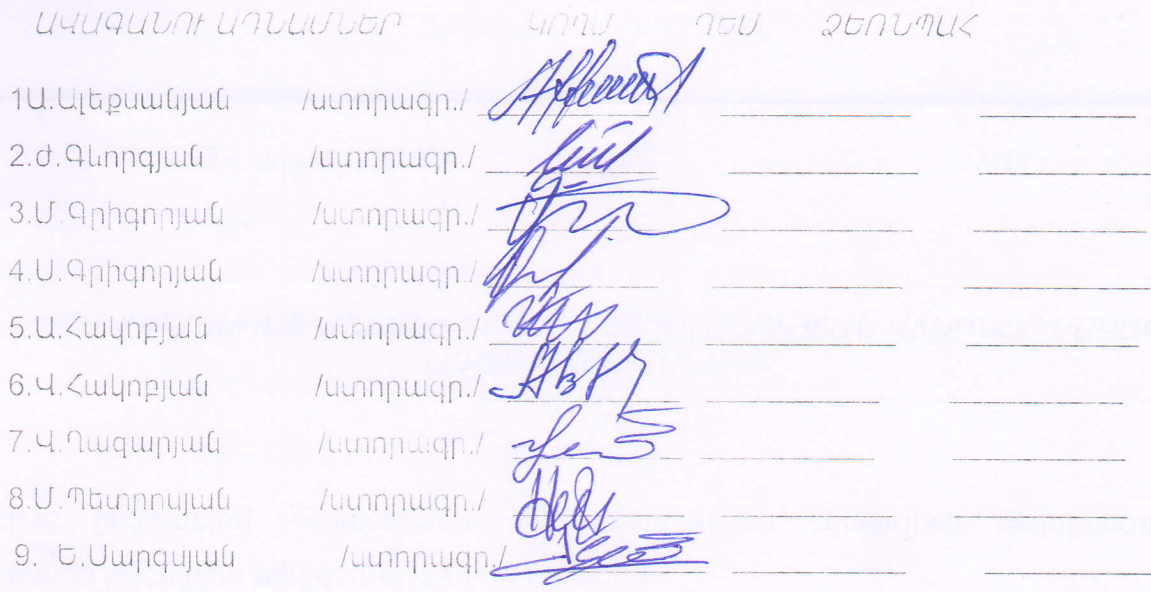 ԱՎԱԳԱՆՈՒ ԱԴՆԱՄՆԵՐ ԿՈՂՄ ԴԵՄ ՁԵՌՆՊԱՀ
1Ա.Ալեքսանյան /ստորագր./
2.Ժ.Գևորգյան /ստորագր./
3.Մ.Գրիգորյան /ստորագր./
4.Ս.Գրիգորյան /ստորագր./
5.Ա.Հակոբյան /ստորագր./
6.Վ.Հակոբյան /ստորագր./
7.Վ.Ղազարյան /ստորագր./
8.Մ.Պետրոսյան /ստորագր./
9. Ե.Սարգսյան /ստորագր./